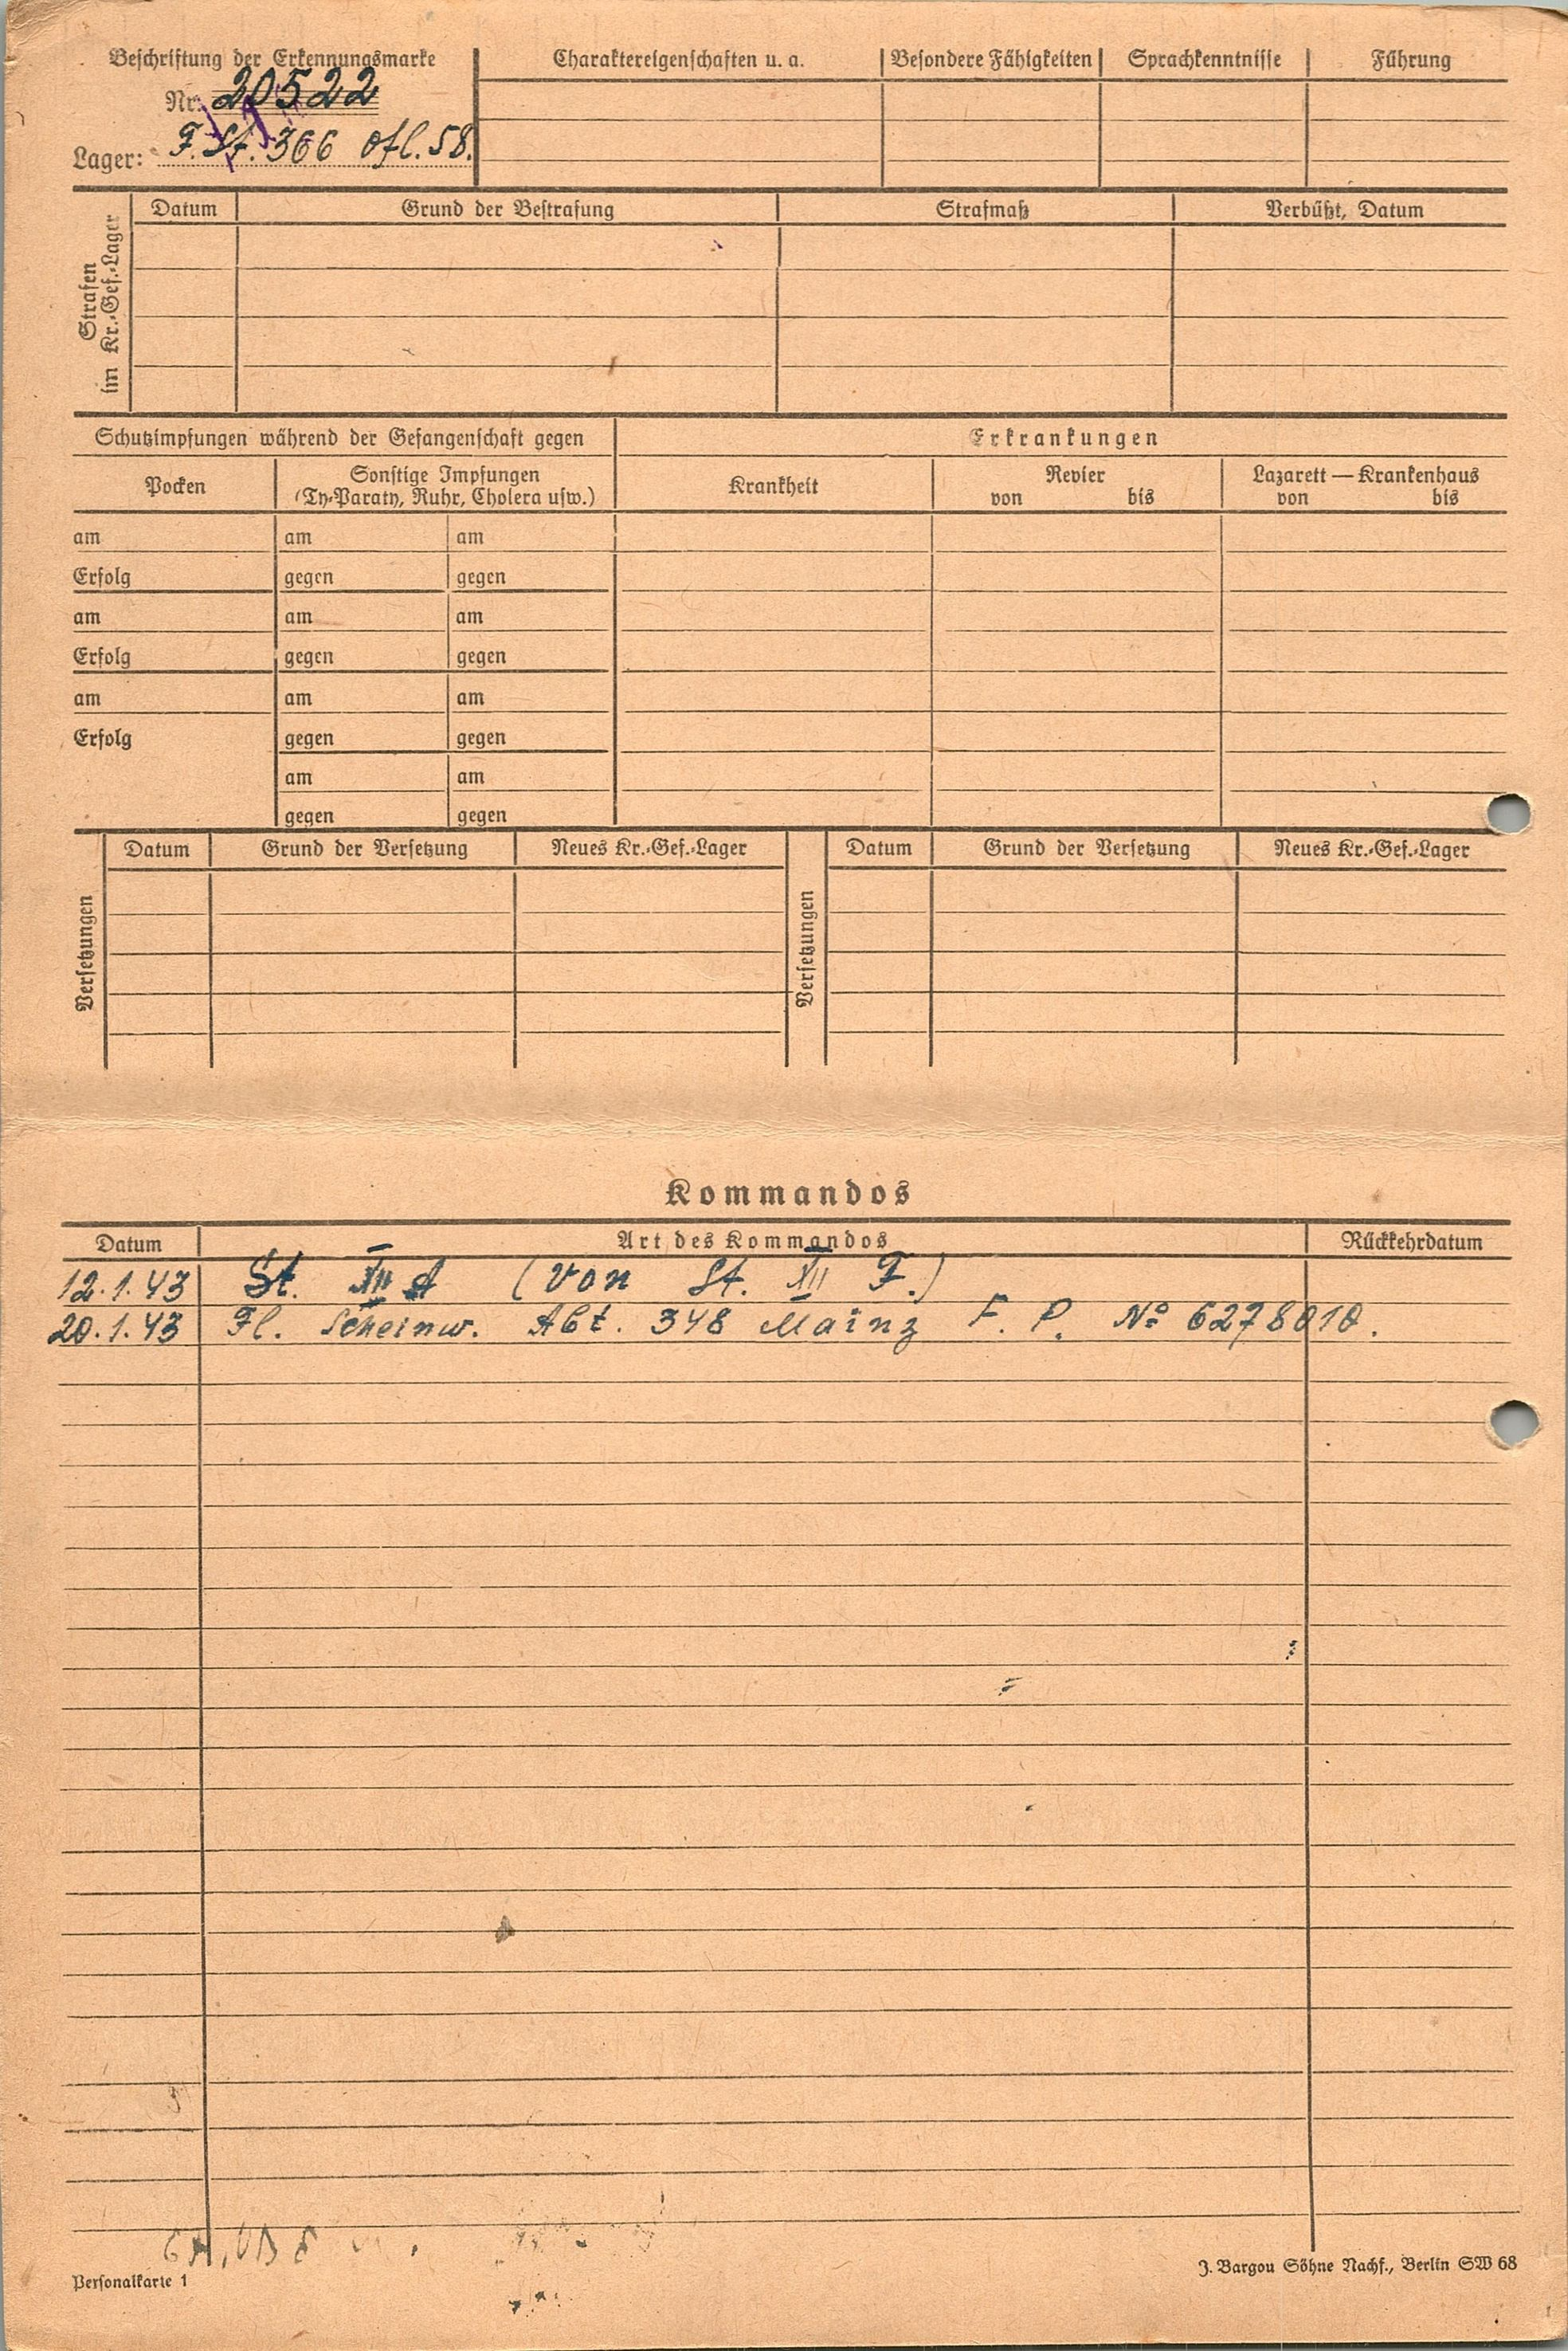 Beschriftung der Erkennungsmarke
Nr. 20522
Lager: F. St. 366 Ofl. 58.
Charaktereigenschaften u. a.
Besondere Fähigkeiten
Sprachkenntnisse
Führung
Strafen im Kr.-Gef.-Lager
Datum
Grund der Bestrafung
Strafmaß
Verbüßt, Datum
Schutzimpfungen während der Gefangenschaft gegen
Erkrankungen
Pocken
Sonstige Impfungen
(Ty-Paraty, Ruhr, Cholera usw.)
Krankheit
Revier
von bis
Lazarett — Krankenhaus
von bis
am am am
Erfolg gegen gegen
am am am
Erfolg gegen gegen
am am am
Erfolg gegen gegen
am am
gegen gegen
Versetzungen
Datum
Grund der Versetzung
Neues Kr.-Gef.-Lager
Versetzungen
Datum
Grund der Versetzung
Neues Kr.-Gef.-Lager
Kommandos
Datum Art des Kommandos Rückkehrdatum
12.1.43 St. XII A (von St. XII F.)
20.1.43 Fl. Scheinw. Abt. 348 Mainz F. P. No 6278010.
Personalkarte 1
J. Bargou Söhne Nachf., Berlin SW 68